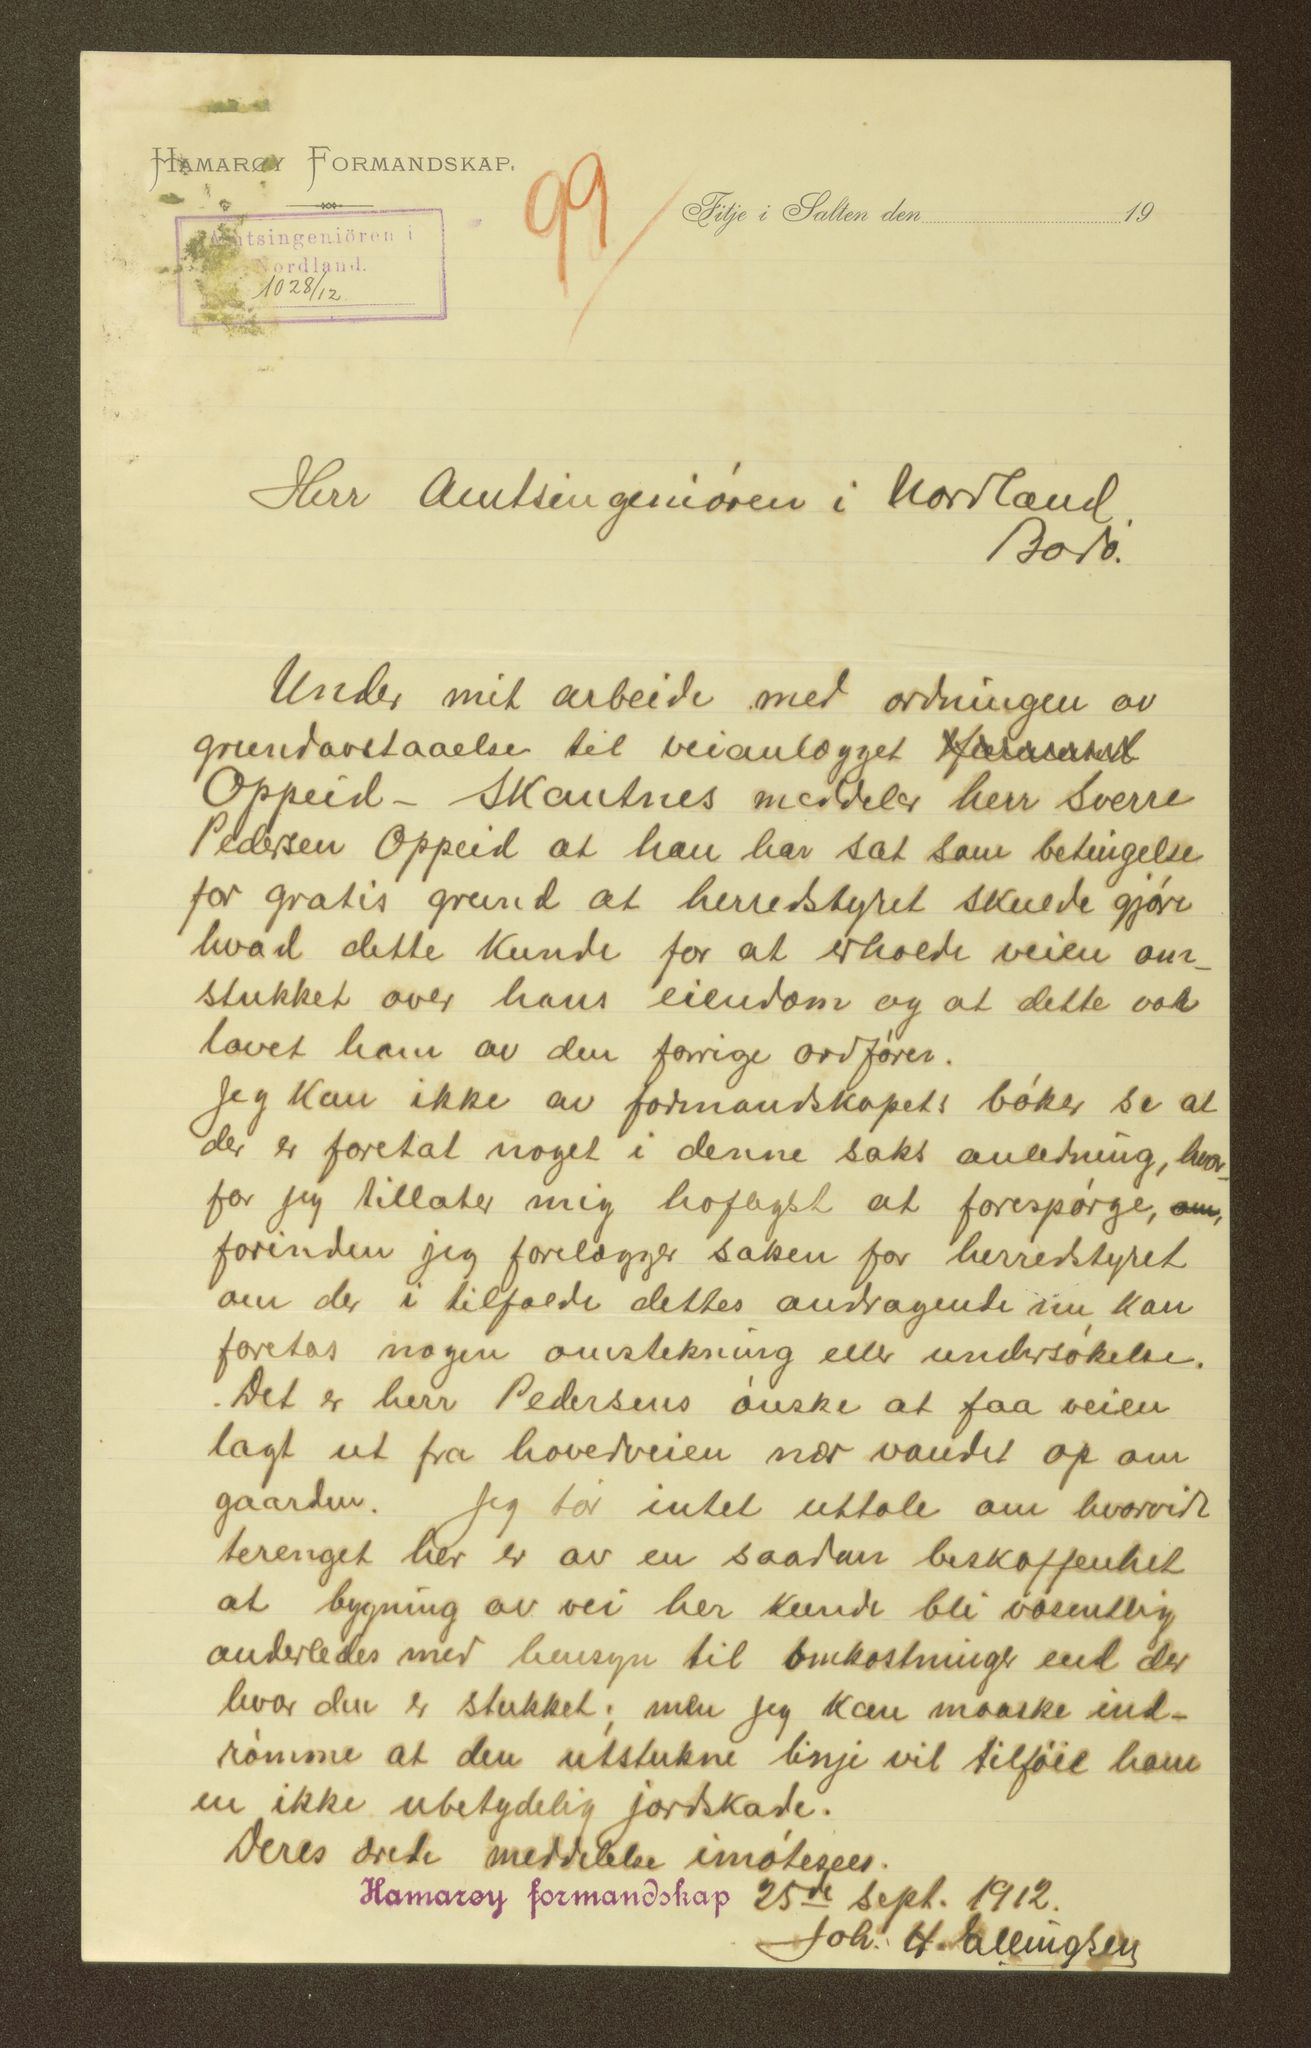 HAMARØY FORMANDSKAP.
99
Fitje i Salten den 19
Amtsingeniören i
Nordland.
1028/12
Herr Amtsingeniören i Nordland
Bodö.
Under mit arbeide med ordningen av
grundavstaaelse til veianlægget
Oppeid - Skautnes meddeler herr Sverre
Pedersen Oppeid at han har sat som betingelse
for gratis grund at herredstyret skulde gjöre
hvad dette kunde for at erholde veien om-
stukket over hans eiendom og at dette var
lovet ham av den forrige ordförer.
Jeg kan ikke av formandskapets böker se at
der er foretat noget i denne saks anledning, hvor-
for jeg tillater mig höfligst at forespörge, om,
forinden jeg forelægger saken for herredstyret
om der i tilfælde dettes andragende nu kan
foretas nogen omstekning eller undersökelse.
Det er herr Pedersens önske at faa veien
lagt ut fra hovedveien nær vandet op om
gaarden. Jeg tör intet uttale om hvorvidt
terenget her er av en saadan beskaffenhet
at bygning av vei her kunde bli væsentlig
anderledes med hensyn til omkostninger end der
hvor den er stukket; men jeg kan maaske ind-
römme at den utstukne linje vil tilföie ham
en ikke ubetydelig jordskade.
Deres ærede meddelelse imötesees.
Hamarøy formandskap 25de sept. 1912.
Joh. H. Ellingsen